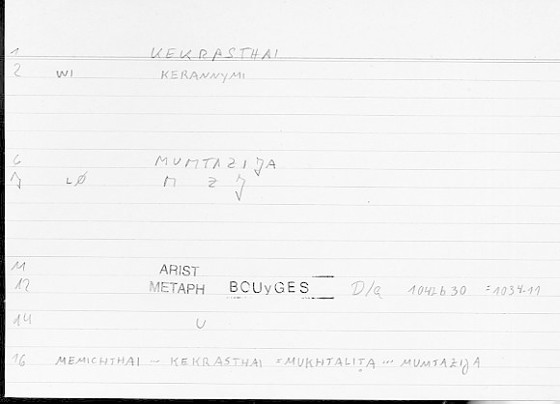 1 KEKRASTHAI
2 WI KERANNYMI
6 MUMTAZIJA
J LØ M Z J
11 ARIST
12 METAPH BOUyGES D/a 1042b30 =1034.11
14 U
16 MEMICHTHAI - KEKRASTHAI = MUKHTALIṬA ... MUMTAZIJA